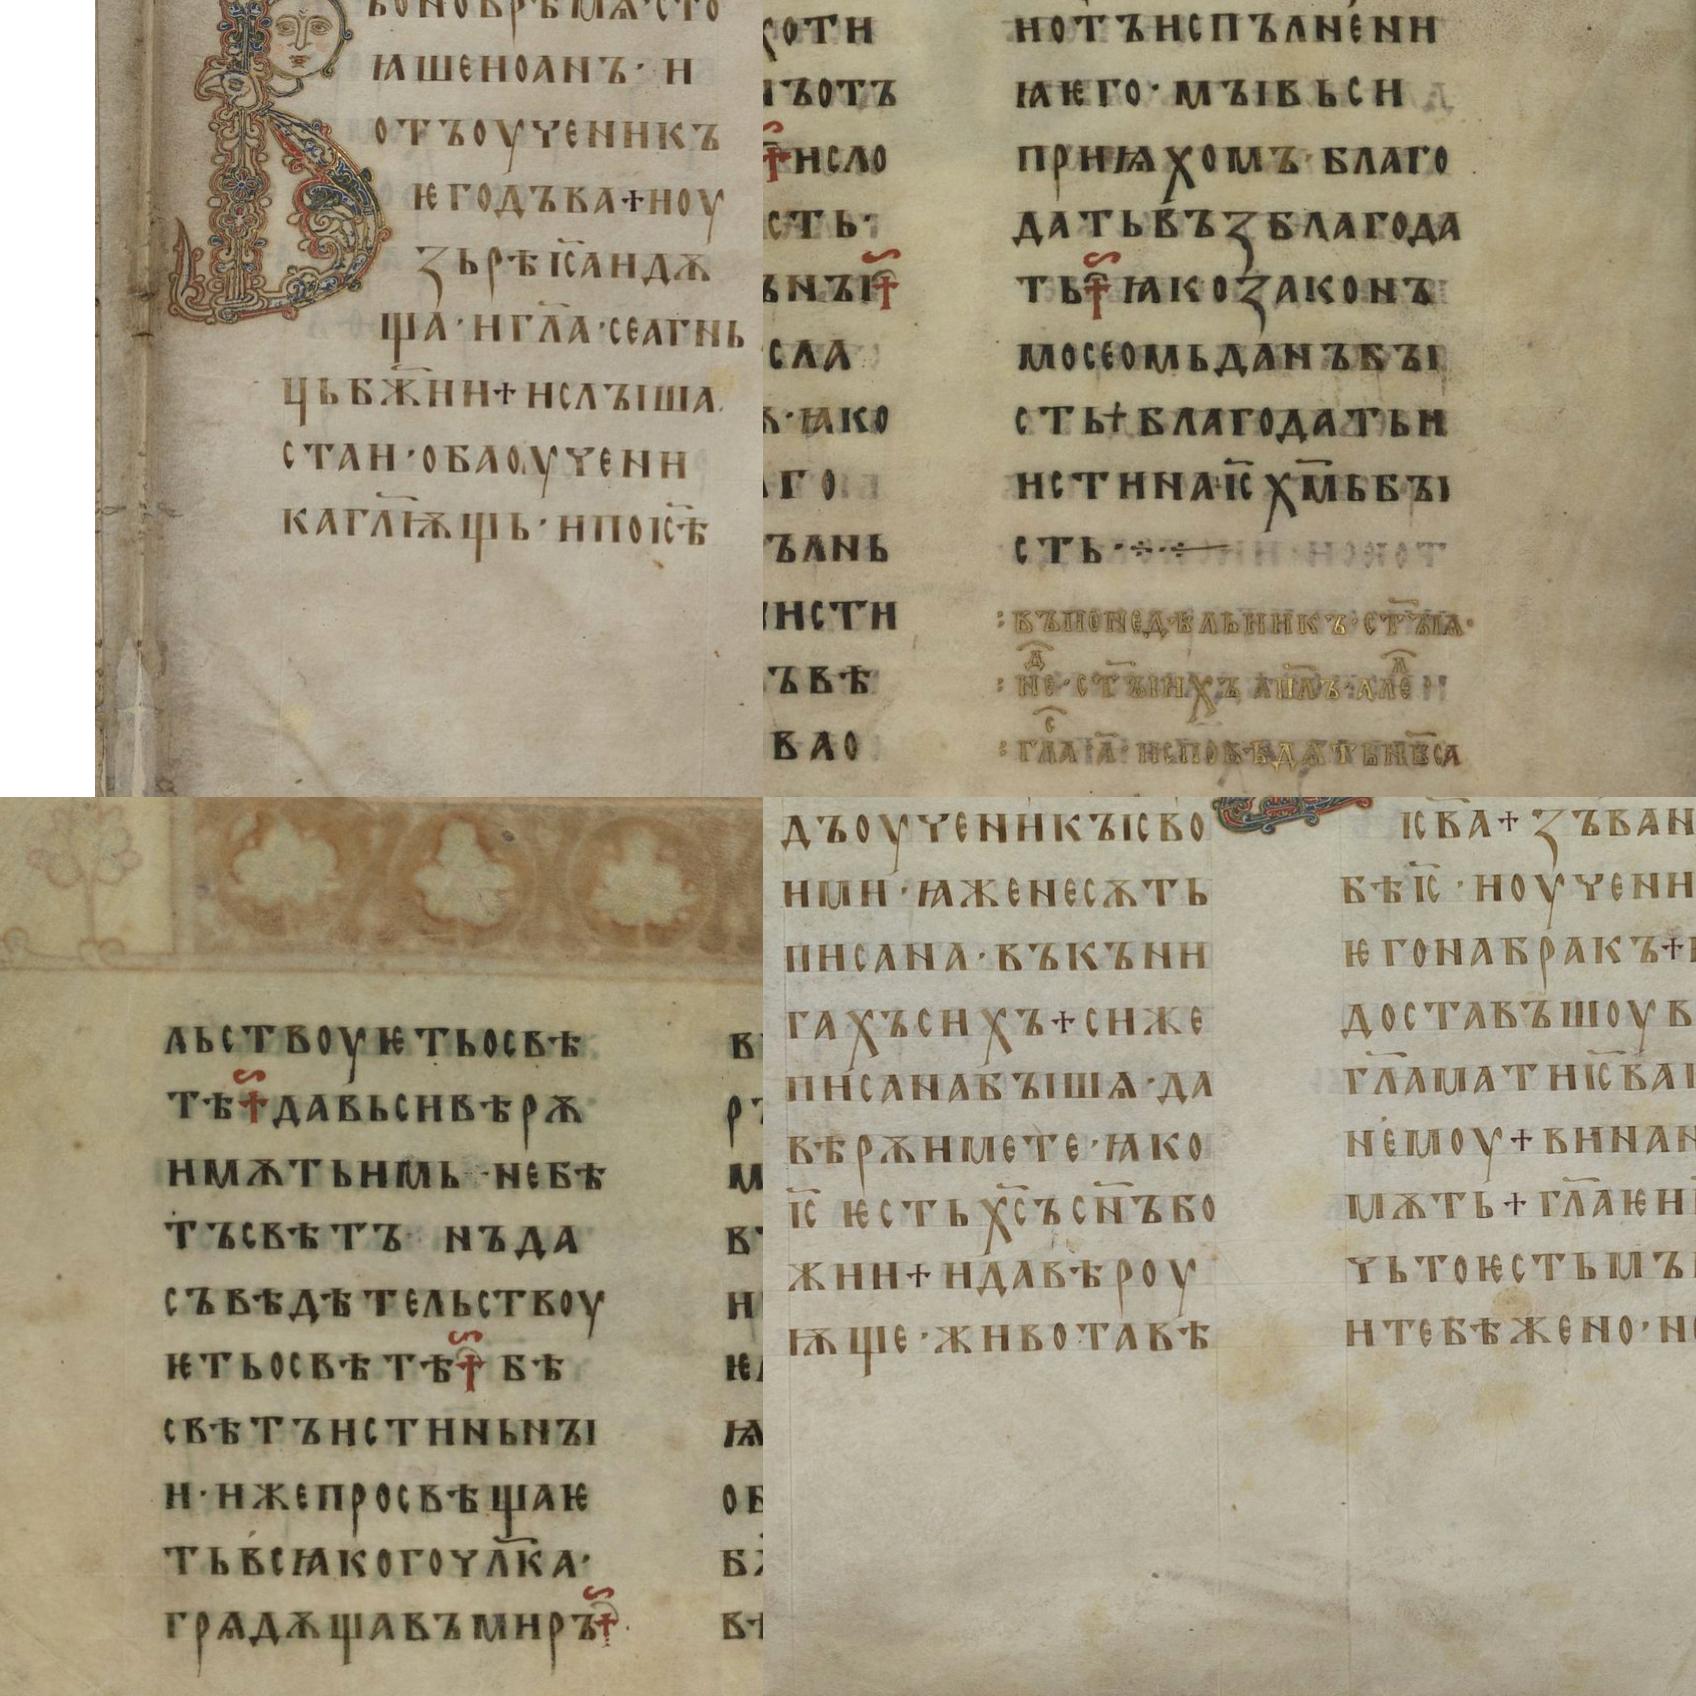 ꙗшеиоанъ· и
отъоуученикъ
ѥгодъва+ноу
зьрѣі҃санда
ща·нгл҃а·сеагнь
цьбж҃ии+ислъіша
стаи·обаоуучени
каглѭ҃щь·ипоі҃сѣ
хоти
ъотъ
†исло
сть·
ьнъі†
сла
ꙗко
го
ълнь
нсти
ъвѣ
вао
нотъиспълнении
ꙗѥго·мъівьси
приѩхомъ·благо
датьвъзблагода
ть†ꙗкозаконъ
мосеомьданъбъі
сть†благодатьи
истинаі҃сх҃мьбъі
сть·
:въпонедѣльникъ·ст҃ъіѩ·
не·ст҃ъіихъап҃лъ·але
:гл҃а·а҃·исповѣдѧтьнб҃са
льствоуѥтьосвѣ
тѣ†давьсивѣрѫ
имѫтьимь·небѣ
тъсвѣтъ нъда
съвѣдѣтельствоу
ѥтьосвѣтѣ†бѣ
свѣтъистиньнъі
и·ижепросвѣщаѥ
тьвсꙗкогочл҃ка·
грѧдѫщавъмиръ†
дъоуученикъісво
ими·ꙗженесѫть
писана·въкъни
гахъсихъ+сиже
писанабъішѧ·да
вѣрѫимете·ꙗко
і҃с ѥстьх҃съсн҃ъбо
жии+идавѣроу
ѭще·животавѣ
і҃сва+зъван
бѣі҃с·иоуучени
ѥгонабракъ+
доставъшоув
гл҃аматиі҃сва
немоу+винан
мѫть+гл҃аѥи
чьтоѥстьмъ
итебѣжено·н